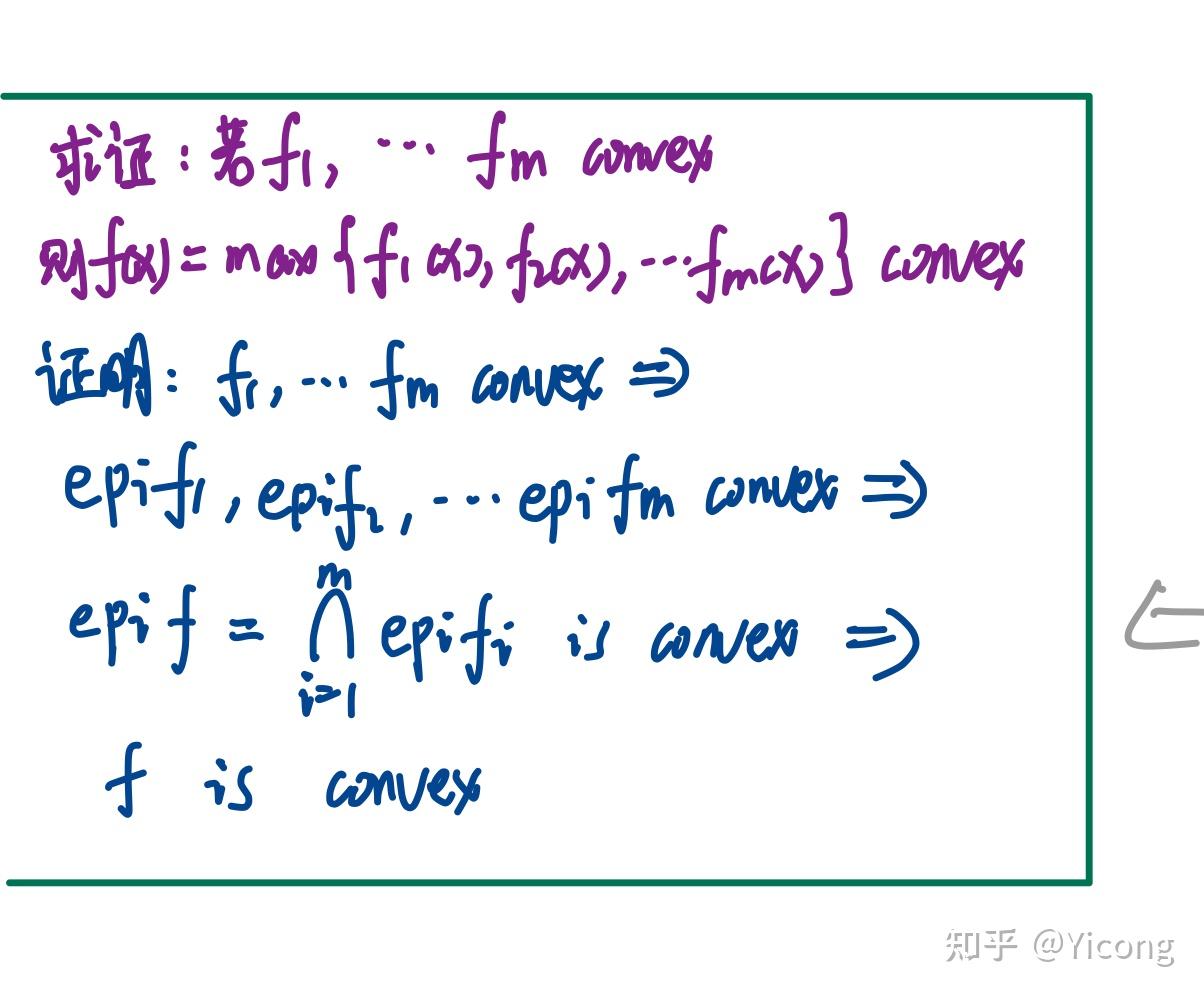 求证：若 f₁, ⋯ fₘ convex
则 f(x) = max { f₁(x), f₂(x), ⋯ fₘ(x) } convex
证明： f₁, ⋯ fₘ convex ⇒
epi f₁, epi f₂, ⋯ epi fₘ convex ⇒
epi f = ⋂ᵢ₌₁ᵐ epi fᵢ is convex ⇒
f is convex
知乎 @Yicong